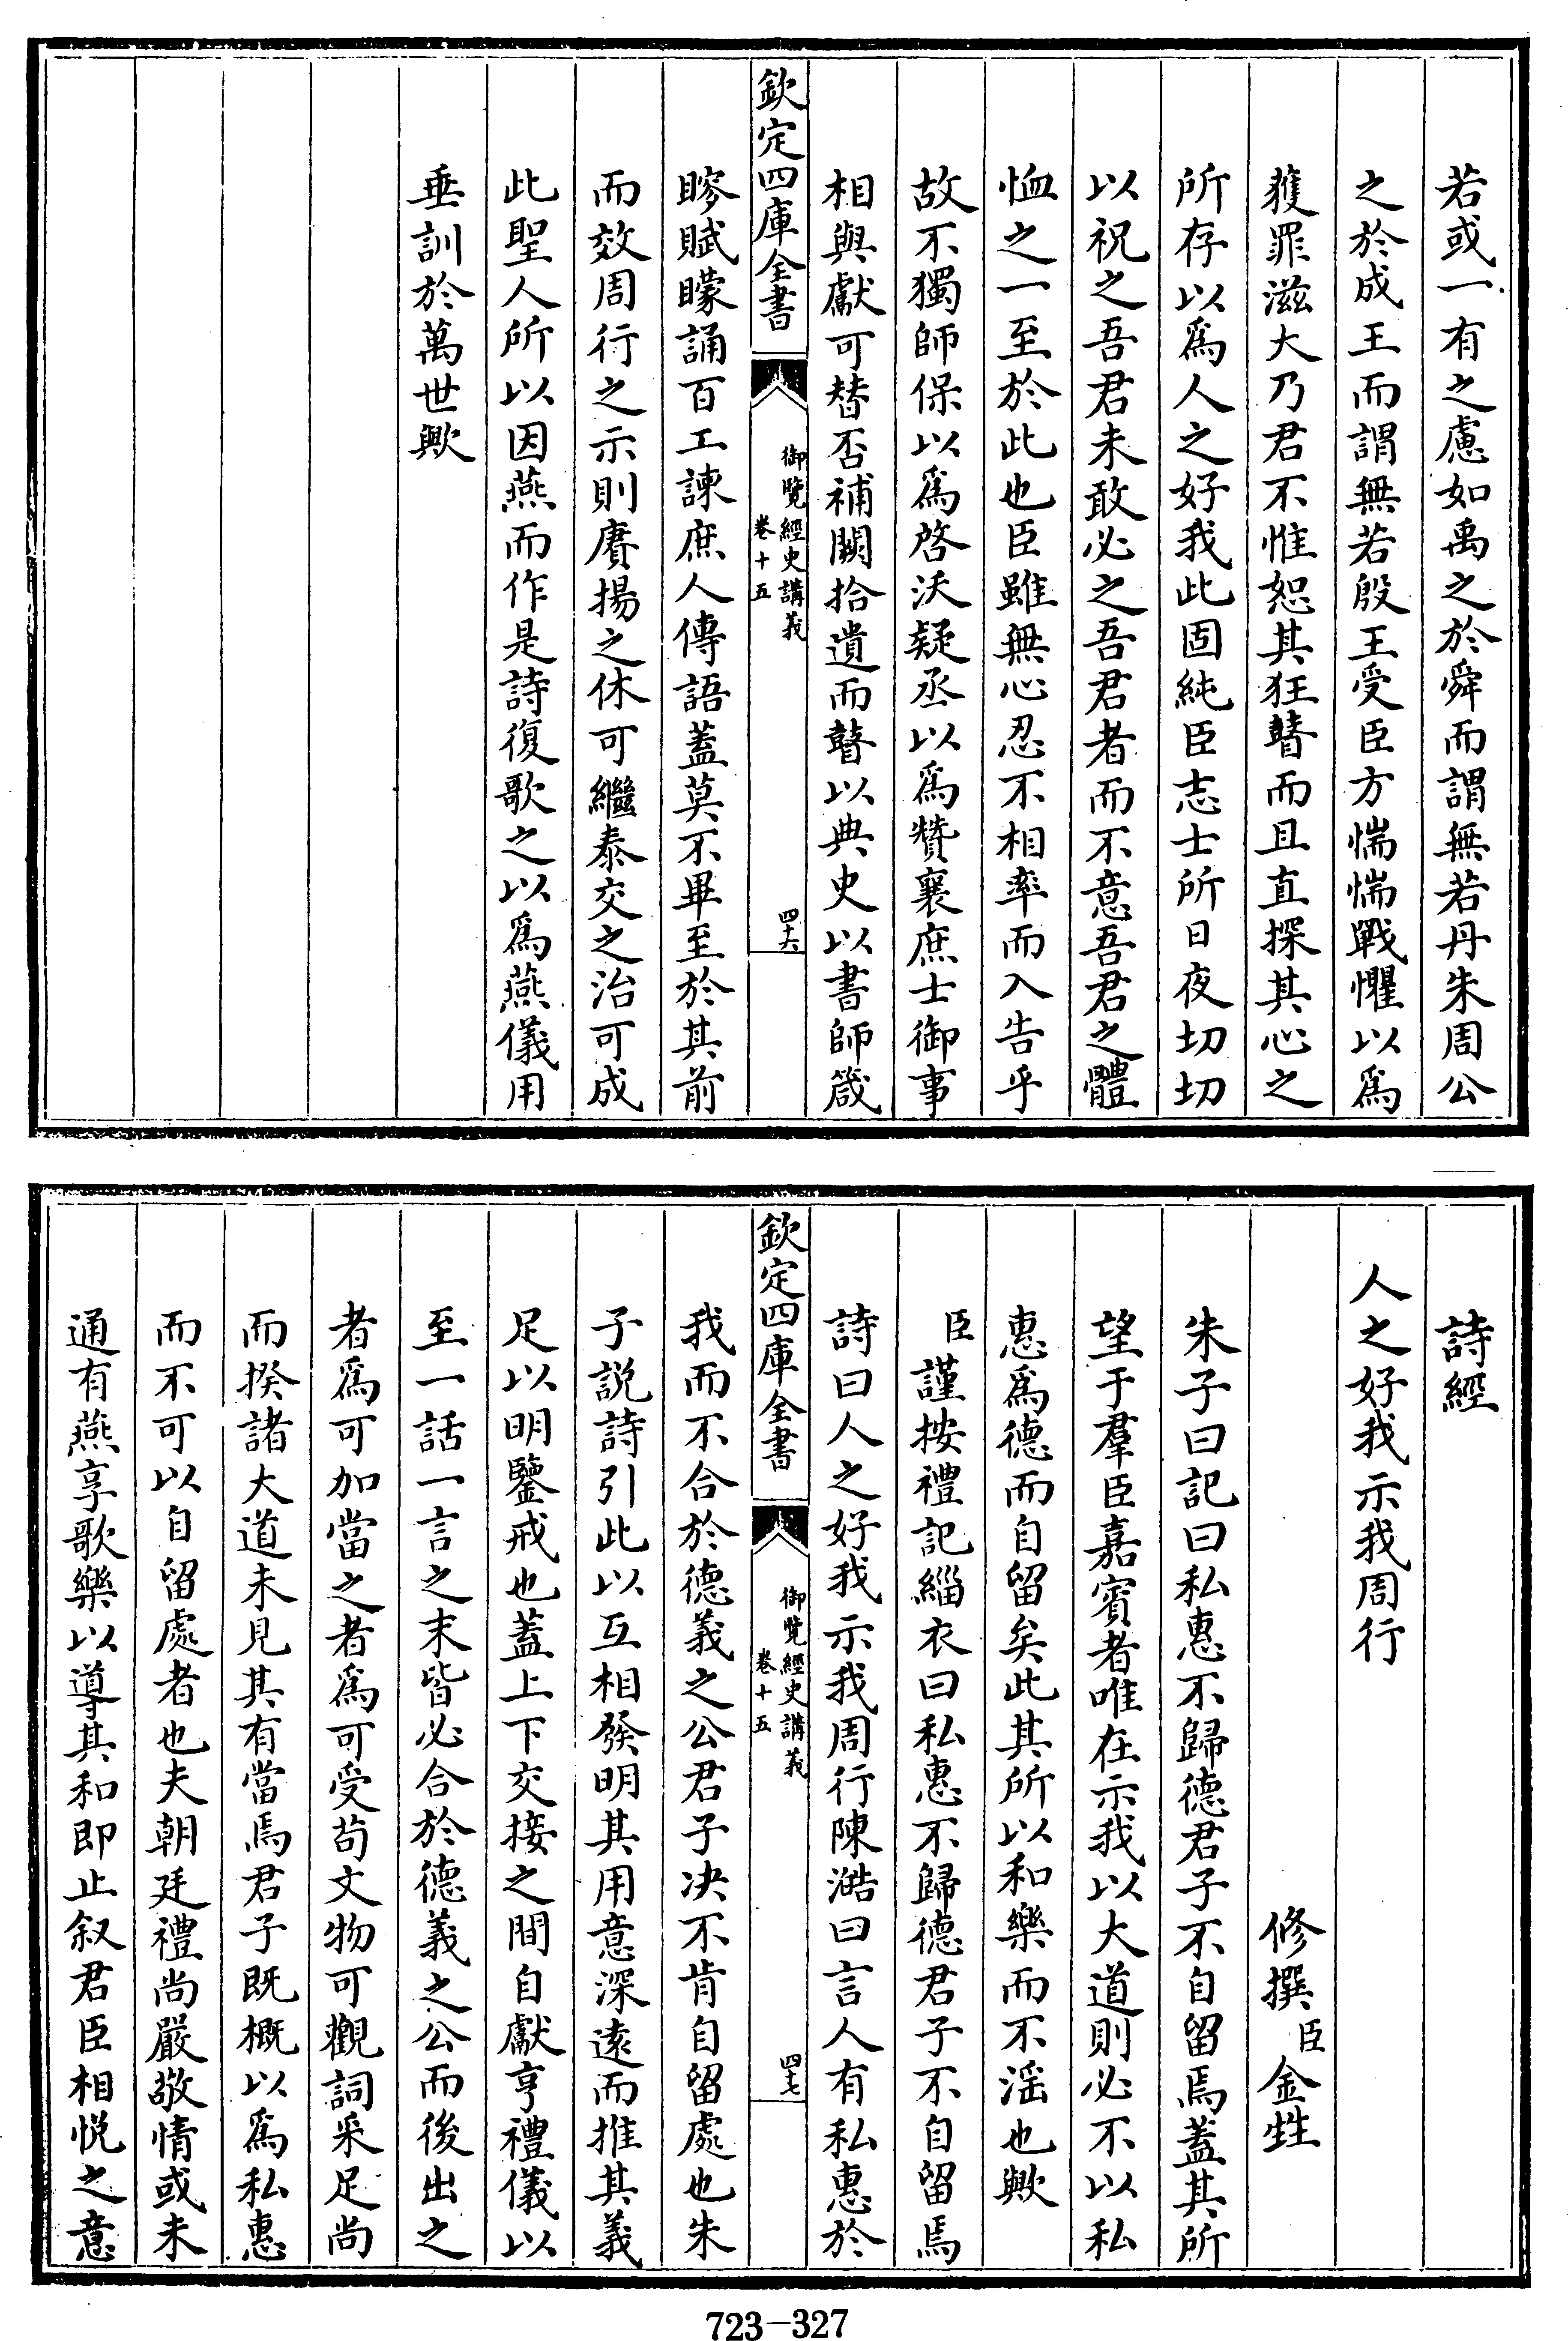 若或一有之慮如禹之於舜而謂無若丹朱周公
之於成王而謂無若殷王受臣方惴惴戰懼以爲
獲罪滋大乃君不惟恕其狂瞽而且直探其心之
所存以爲人之好我此固純臣志士所日夜切切
以祝之吾君未敢必之吾君者而不意吾君之體
恤之一至於此也臣雖無心忍不相率而入告乎
故不獨師保以爲啓沃疑丞以爲贊襄庶士御事
相與獻可替否補闕拾遺而瞽以典史以書師箴
欽定四庫全書
御覽經史講義
卷十五
四十六
瞍賦矇誦百工諫庶人傳語蓋莫不畢至於其前
而效周行之示則賡揚之休可繼泰交之治可成
此聖人所以因燕而作是詩復歌之以爲燕儀用
垂訓於萬世歟
詩經
人之好我示我周行
修撰臣金甡
朱子曰記曰私惠不歸德君子不自留焉蓋其所
望于羣臣嘉賓者唯在示我以大道則必不以私
惠爲德而自留矣此其所以和樂而不淫也歟
臣謹按禮記緇衣曰私惠不歸德君子不自留焉
詩曰人之好我示我周行陳澔曰言人有私惠於
欽定四庫全書
御覽經史講義
卷十五
四十七
我而不合於德義之公君子决不肯自留處也朱
子説詩引此以互相發明其用意深遠而推其義
足以明鑒戒也蓋上下交接之間自獻享禮儀以
至一話一言之末皆必合於德義之公而後出之
者爲可加當之者爲可受茍文物可觀詞采足尚
而揆諸大道未見其有當焉君子既概以爲私惠
而不可以自留處者也夫朝廷禮尚嚴敬情或未
通有燕享歌樂以導其和即止叙君臣相悦之意
723-327